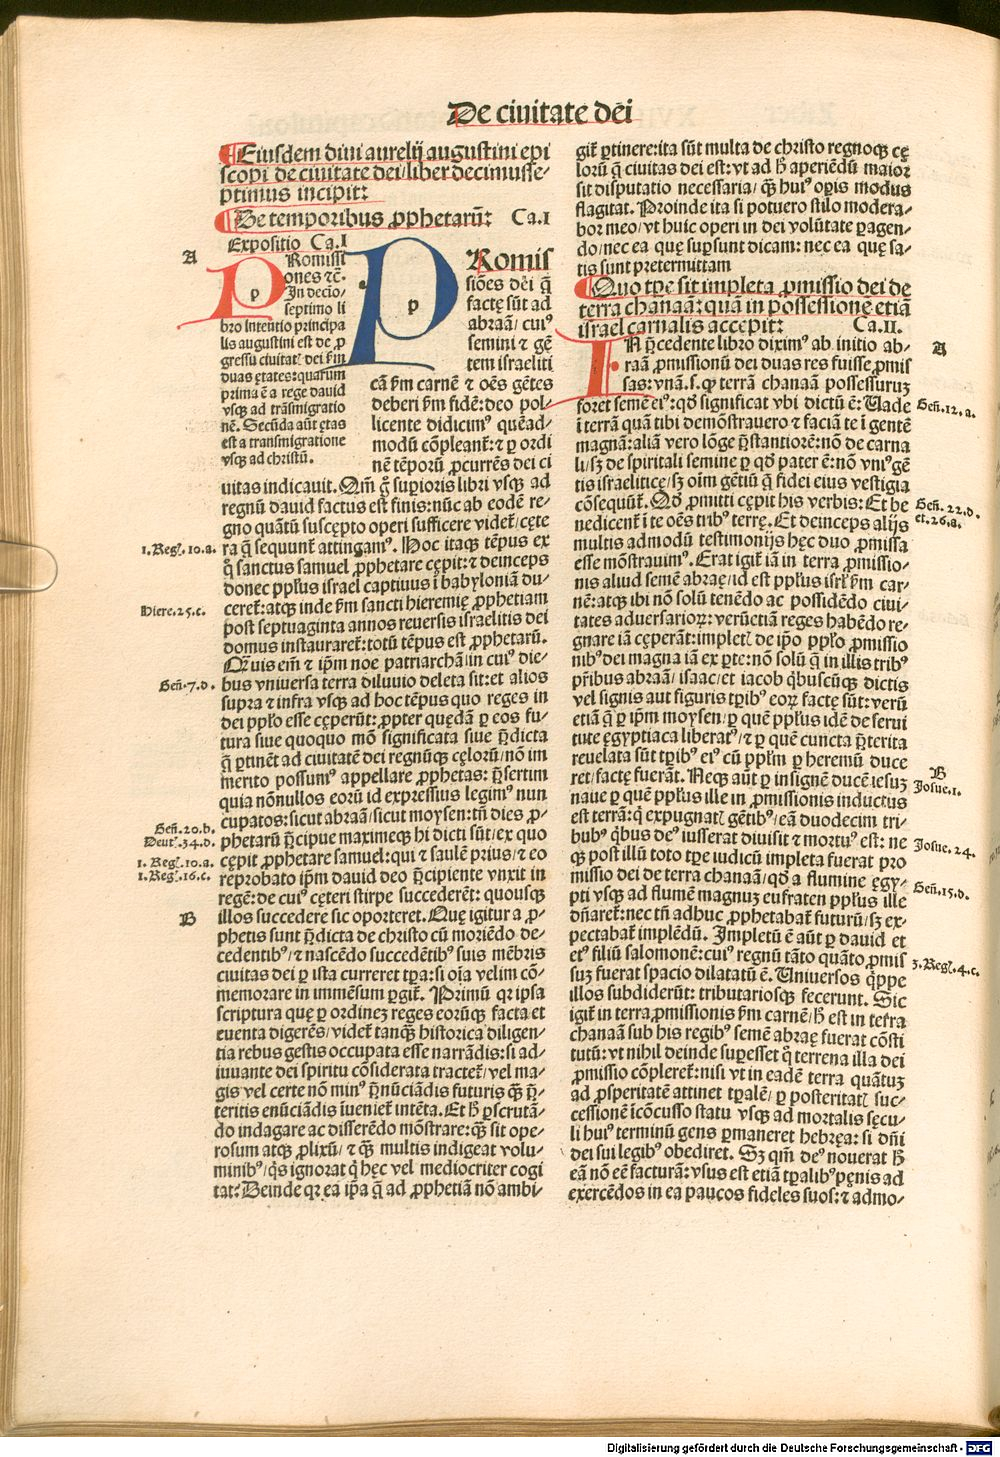 De ciuitate dei
Eiusdem diui aurelij augustini epi
scopi de ciuitate dei/liber decimusse⸗
ptimus incipit:
De temporibus ꝓphetarū: Ca.I
Expositio Ca.I
A
Romissi
ones ⁊č.
In decio/
septimo li
bro intentio principa
lis augustini est de ꝓ
gressu ciuitat̉ dei ẜm
duas ętates: quarum
prima ē a rege dauid
vsqꝫ ad trāsmigratio
nē. Secūda aūt ętas
est a transmigratione
vsqꝫ ad christū.
p
p
Romis
siōes dei q̄
factę sūt ad
abraā/ cuiꝰ
semini ⁊ gē
tem israeliti
cā ẜm carnē ⁊ oēs gētes
deberi ẜm fidē: deo pol⸗
licente didicimꝰ quēad⸗
modū cōpleant̉: ⁊ ꝑ ordi
nē tēporū ꝓcurrēs dei ci
uitas indicauit. Qm̄ g̊ suꝑioris libri vsqꝫ ad
regnū dauid factus est finis: nūc ab eodē re⸗
gno quātū suscępto operi sufficere videt̉/ cęte
ra q̄ sequunt̉ attingamꝰ. Hoc itaqꝫ tēpus ex
q̊ sanctus samuel ꝓphetare cępit: ⁊ deinceps
donec pp̄lus israel captiuus ī babyloniā du⸗
ceret̉: atqꝫ inde ẜm sancti hieremię ꝓphetiam
post septuaginta annos reuersis israelitis dei
domus instauraret̉: totū tēpus est ꝓphetarū.
Q̄uis em̄ ⁊ ip̄m noe patriarchā/ in cuiꝰ die⸗
bus vniuersa terra diluuio deleta sit: et alios
supra ⁊ infra vsqꝫ ad hoc tēpus quo reges in
dei pp̄lo esse cępērūt: ꝓpter quędā ꝑ eos fu⸗
tura siue quoquo mō significata siue p̄dicta
q̄ ꝑtinēt ad ciuitatē dei regnūqꝫ cęlorū/ nō im
merito possumꝰ appellare ꝓphetas: p̄sertim
quia nōnullos eorū id expressius legimꝰ nun
cupatos: sicut abraā/ sicut moysen: tn̄ dies ꝓ⸗
phetarū p̄cipue maximeqꝫ hi dicti sūt/ ex quo
cępit ꝓphetare samuel: qui ⁊ saulē prius/ ⁊ eo
reprobato ip̄m dauid deo p̄cipiente vnxit in
regē: de cuiꝰ cęteri stirpe succederēt: quousqꝫ
illos succedere sic oporteret. Quę igitur a ꝓ⸗
phetis sunt p̄dicta de christo cū moriēdo de⸗
cedentibꝰ/ ⁊ nascēdo succedētibꝰ suis mēbris
ciuitas dei ꝑ ista curreret tp̄a: si oīa velim cō⸗
memorare in immēsum ꝑgit̉. Primū qꝛ ipsa
scriptura quę ꝑ ordinēꝫ reges eorūqꝫ facta et
euenta digerēs/ videt̉ tanqꝫ historica diligen⸗
tia rebus gestis occupata esse narrādis: si ad⸗
iuuante dei spiritu cōsiderata tractet̉/ vel ma⸗
gis vel certe nō minꝰ p̄nūciādis futuris q̄ꝫ p̄⸗
teritis enūciādis īueniet̉ intēta. Et ħ ꝑscrutā⸗
do indagare ac disserēdo mōstrare: q̄ꝫ sit ope⸗
rosum atqꝫ ꝓlixū/ ⁊ q̄ꝫ multis indigeat volu⸗
minibꝰ/ q̊s ignorat q̊ hęc vel mediocriter cogi
tat: Deinde qꝛ ea ip̄a q̄ ad ꝓphetiā nō ambi⸗
1.Reg̉.10.a.
Hiere.25.c.
Gen̄.7.d.
Gen̄.20.b.
Deut̉.34.d.
1.Reg̉.10.a.
1.Reg̉.16.c.
B
git̉ ꝑtinere: ita sūt multa de christo regnoqꝫ cę
lorū q̄ ciuitas dei est: vt ad ħ aperiēdū maior
sit disputatio necessaria/ q̄ꝫ huiꝰ oꝑis modus
flagitat. Proinde ita si potuero stilo modera⸗
bor meo/ vt huic operi in dei volūtate ꝑagen⸗
do/ nec ea quę suꝑsunt dicam: nec ea quę sa⸗
tis sunt pretermittam
Quo tp̄e sit impleta ꝓmissio dei de
terra chanaā: quā in possessionē etiā
israel carnalis accepit: Ca.II.
IN p̄cedente libro diximꝰ ab initio ab⸗
raā ꝓmissionū dei duas res fuisse ꝓmis
sas: vnā.s.ꝙ terrā chanaā possessuruꝫ
foret semē eiꝰ: qd̄ significat vbi dictū ē: Uade
ī terrā quā tibi demōstrauero ⁊ faciā te ī gentē
magnā: aliā vero lōge p̄stantiorē: nō de carna
li/ sꝫ de spiritali semine ꝑ qd̄ pater ē: nō vniꝰ gē
tis israeliticę/ sꝫ oīm gētiū q̄ fidei eius vestigia
cōsequūt̉. Qd̄ ꝓmitti cępit his verbis: Et be
nedicent̉ ī te oēs tribꝰ terrę. Et deinceps alijs
multis admodū testimonijs hęc duo ꝓmissa
esse mōstrauimꝰ. Erat igit̉ iā in terra ꝓmissio⸗
nis aliud semē abraę/ id est pp̄lus isrl̄ ẜm car⸗
nē: atqꝫ ibi nō solū tenēdo ac possidēdo ciui⸗
tates aduersarioꝝ: verūetiā reges habēdo re⸗
gnare iā cęperāt: impletꝭ de ip̄o pp̄lo ꝓmissio
nibꝰ dei magna iā ex ꝑte: nō solū q̄ in illis tribꝰ
pr̄ibus abraā/ isaac/ et iacob q̊buscūqꝫ dictis
vel signis aut figuris tp̄ibꝰ eoꝝ factę sūt: verū
etiā q̄ ꝑ ip̄m moysen/ ꝑ quē pp̄lus idē de serui
tute ęgyptiaca liberatꝰ/ ⁊ ꝑ quē cuncta p̄terita
reuelata sūt tp̄ibꝰ eiꝰ cū pp̄lm ꝑ heremū duce
ret/ factę fuerāt. Neqꝫ aūt ꝑ insignē ducē iesuꝫ
naue ꝑ quē pp̄lus ille in ꝓmissionis inductus
est terrā: q̄ expugnatꝭ gētibꝰ/ eā duodecim tri⸗
bubꝰ q̊bus deꝰ iusserat diuisit ⁊ mortuꝰ est: ne
qꝫ post illū toto tp̄e iudicū impleta fuerat pro
missio dei de terra chanaā/ qd̄ a flumine ęgy⸗
pti vsqꝫ ad flumē magnuꝫ eufraten pp̄lus ille
dn̄aret̉: nec tn̄ adhuc ꝓphetabat̉ futurū/ sꝫ ex⸗
pectabat̉ implēdū. Impletū ē aūt ꝑ dauid et
etꝰ filiū salomonē: cuiꝰ regnū tāto quāto ꝓmis
suꝫ fuerat spacio dilatatū ē. Uniuersos q̊ppe
illos subdiderūt: tributariosqꝫ fecerunt. Sic
igit̉ in terra ꝓmissionis ẜm carnē/ ħ est in terra
chanaā sub his regibꝰ semē abraę fuerat cōsti
tutū: vt nihil deinde suꝑesset q̊ terrena illa dei
ꝓmissio cōpleret̉: nisi vt in eadē terra quātuꝫ
ad ꝓsperitatē attinet tp̄alē/ ꝑ posteritatꝭ suc⸗
cessionē īcōcusso statu vsqꝫ ad mortalis sęcu⸗
li huiꝰ terminū gens ꝑmaneret hebręa: si dn̄i
dei sui legibꝰ obediret. Sꝫ qm̄ deꝰ nouerat ħ
eā nō eē facturā: vsus est etiā tp̄alibꝰ pęnis ad
exercēdos in ea paucos fideles suos: ⁊ admo⸗
A
Gen̄.12.a.
Gen̄.22.d.
et.26.a.
B
Josue.1.
Josue.24.
Gen̄.15.d.
3.Reg̉.4.c.
Digitalisierung gefördert durch die Deutsche Forschungsgemeinschaft - DFG